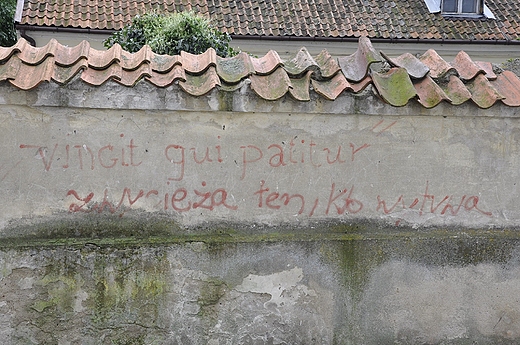 vincit gui patitur
zwycięża ten, kto wytrwa